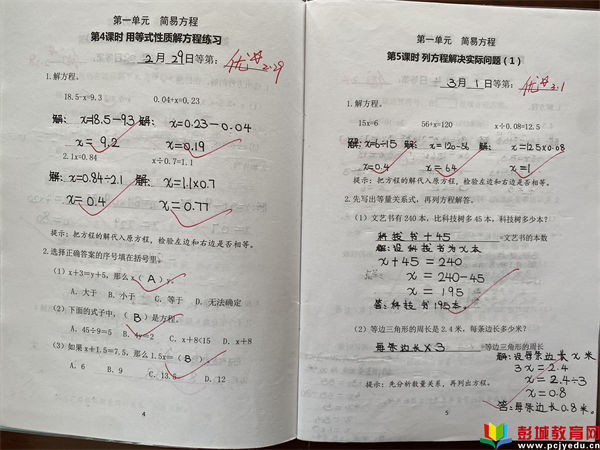 第一单元 简易方程
第4课时 用等式性质解方程练习
2月29日等第: 优 2.29
1.解方程。
18.5-x=9.3 0.04+x=0.23
解: x=18.5-9.3 解: x=0.23-0.04
x=9.2 x=0.19
2.1x=0.84 x÷0.7=1.1
解: x=0.84÷2.1 解: x=1.1×0.7
x=0.4 x=0.77
提示:把方程的解代入原方程,检验左边和右边是否相等。
2.选择正确答案的序号填在括号里。
(1)x+3=y+5,那么x(A)y。
A.大于 B.小于 C.等于 D.无法确定
(2)下面的式子中,(B)是方程。
A.45÷9=5 B.4y=2 C.x+8<15 D.x+8
(3)如果x+1.5=7.5,那么1.5x=(B)。
A.6 B.9 C.13.5 D.12
4
第一单元 简易方程
第5课时 列方程解决实际问题(1)
3月1日等第: 优 3.1
1.解方程。
15x=6 56+x=120 x÷0.08=12.5
解: x=6÷15 解: x=120-56 解: x=12.5×0.08
x=0.4 x=64 x=1
提示:把方程的解代入原方程,检验左边和右边是否相等。
2.先写出等量关系式,再列方程解答。
(1)文艺书有240本,比科技书多45本,科技书多少本?
科技书+45=文艺书的本数
解:设科技书为x本
x+45=240
x=240-45
x=195
答:科技书195本。
(2)等边三角形的周长是2.4米,每条边长多少米?
每条边长×3=等边三角形的周长
解:设每条边长x米
3x=2.4
x=2.4÷3
提示:先分析数量关系,再列出方程。
x=0.8
答:每条边长0.8米。
5
彭城教育网
www.pcjyedu.cn